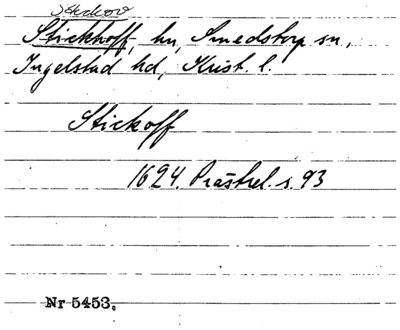 Stickov
Stickhoff, hn, Smedstorp sn,
Ingelstad hd, Krist. l.
Stickoff
1624. Prästrel. s. 93
Nr 5453.